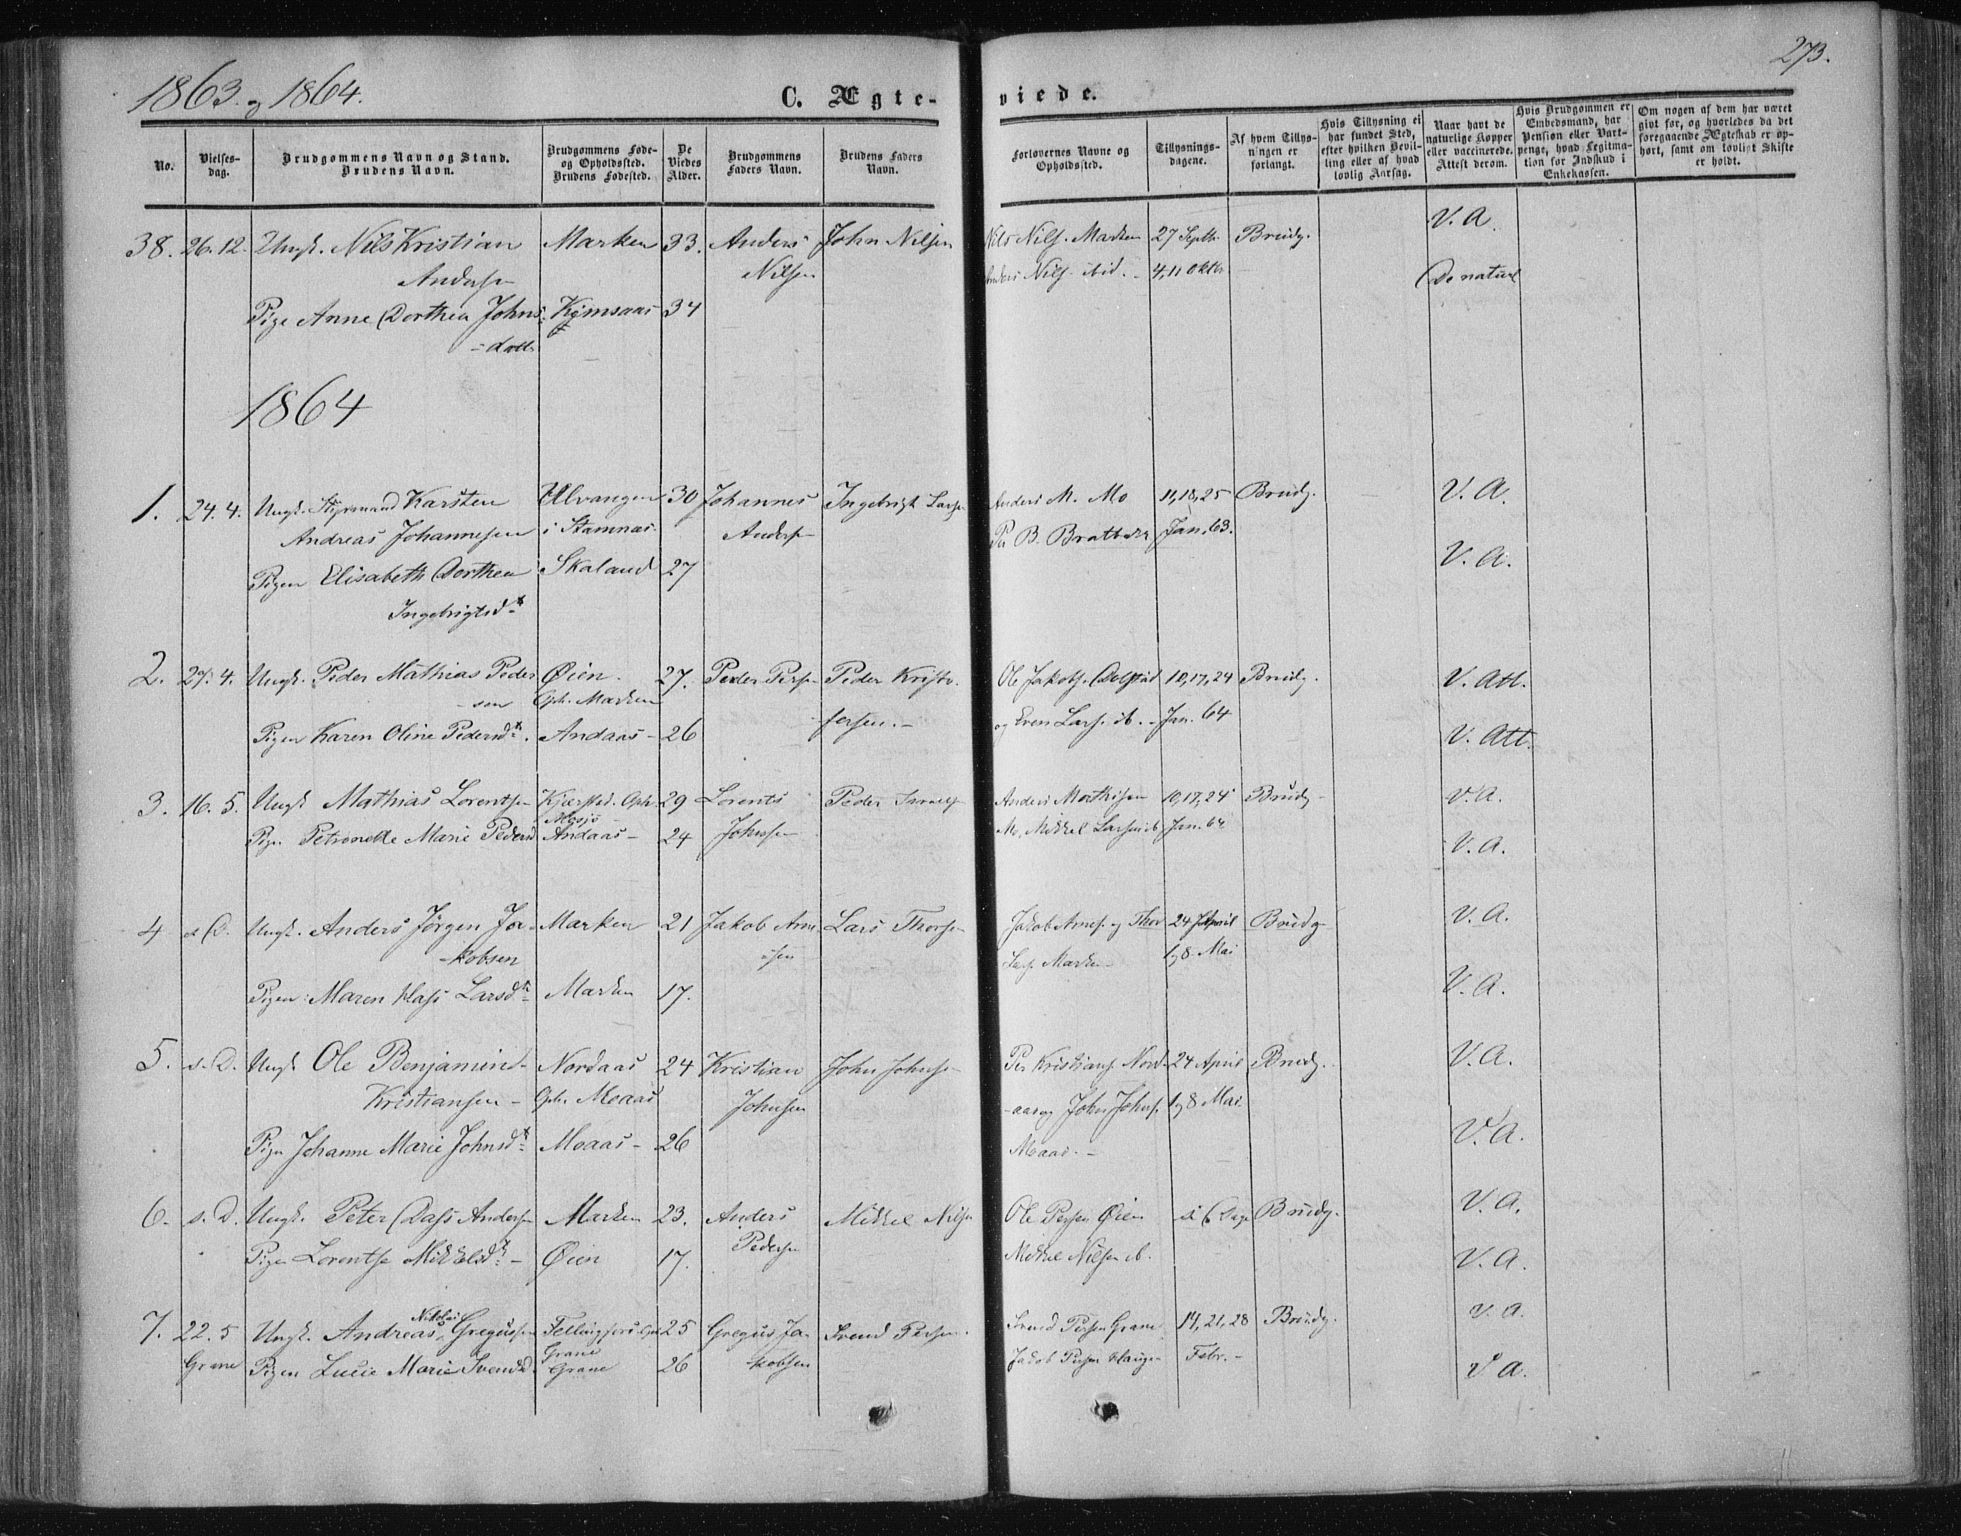 1863. og 1864.
C. Ægteviede.
273.
No.
Vielsesdag.
Brudgommens Navn og Stand. Brudens Navn.
Brudgommens Føde- og Opholdssted. Brudens Fødested.
De Viedes Alder.
Brudgommens Faders Navn.
Brudens Faders Navn.
Forlovernes Navne og Opholdssted.
Tillysningsdagene.
Af hvem Tillysningen er forlangt.
Hvis Tillysning ei har fundet Sted, efter hvilken Bevilling eller af hvad lovlig Aarsag.
Naar havt de naturlige Kopper eller vaccinerede. Attest derom.
Hvis Brudgommen er Embedsmand, har Pension eller Vartpenge, hvad Legitimation for Indskud i Enkekassen.
Om nogen af dem har været givt før, og hvorledes da det foregaaende Ægteskab er ophørt, samt om lovligt Skifte er holdt.
38. 26.12. Ungk. Nils Kristian Marken 33. Anders John Nilsen Nils Nils. Marken 27 Septb. Brudg. V. A.
Anders- Nilsen Anders Nils. ibid. 4, 11 Oktbr Do naturl
Pige Anne Dorthea Johns- 34
-datt.
1864
1. 24.4. Ungk. Styrmand Karsten Ulvangen 30 Johannes Ingebrigt Lars- Anders M. Mo 11,18,25 Brudg. V. A.
Andreas Johannesen i Stamnas Anders- Per B. Jan. 63.
Pigen Elisabeth Dorthea Skaland 27 V. A.
Ingebrigtsdt
2. 27.4. Ungk. Peder Mathias Peder Øien 27. Peder Pers- Peder Kristo- Ole Jakobs. 10,17,24 Brudg. V. Att.
-sen Oph. Marken fersen.- og Even Lars. ib. Jan. 64
Pigen Karen Oline Pedersdt. Andaas- 26 V. Att.
3. 16.5. Ungk Mathias Lorents- Kjærstad. Oph. 29 Lorents Peder Israels- Anders Mathisen 10,17,24 Brudg- V. A.
Mosjø- Johns- Mo, Mikkel Larsen ib Jan. 64
Pigen Petronelle Marie Pedersd Andaas- 24 V. A.
4 s. D. Ungk. Anders Jörgen Ja- Marken 21 Jakob Arn- Lars Thors- Jakob Arnes. og Thor 24 April Brudg- V. A.
-kobsen -sen Lars. Marken- 1, 8 Mai
Pigen: Maren Larsdt Marken 17. V. A.
5. s. D. Ungk Ole Benjamin Nordaas 24 Kristian John Johns- Per Kristians. Nord- 24 April Brudg. V. A.
Kristiansen- Oph. Moaas Johnsen -aas og John Johns. 1, 8 Mai
Pigen Johanne Marie Johnsdt Moaas- 26 Moaas.- V. A.
6. s. D. Ungk. Peter Dass Anders- Marken 23. Anders Mikkel Nilsen Ole Persen Øien Dage Brudg. V. A.
Pigen Lorentse Mikkelsdt- Øien 17. Peders- Mikkel Nilsen ib. V. A.
7. 22.5 Ungk. Andreas Nikolai Greguss- Fellingfors Oph 25 Gregus Ja- Svend Persen. Svend Persen Grane 14,21,28 Brudg. V. A.
Grane Grane -kobsen Febr.-
Pigen Lucie Marie Svendsd. Grane 26 Jakob Persen V A.